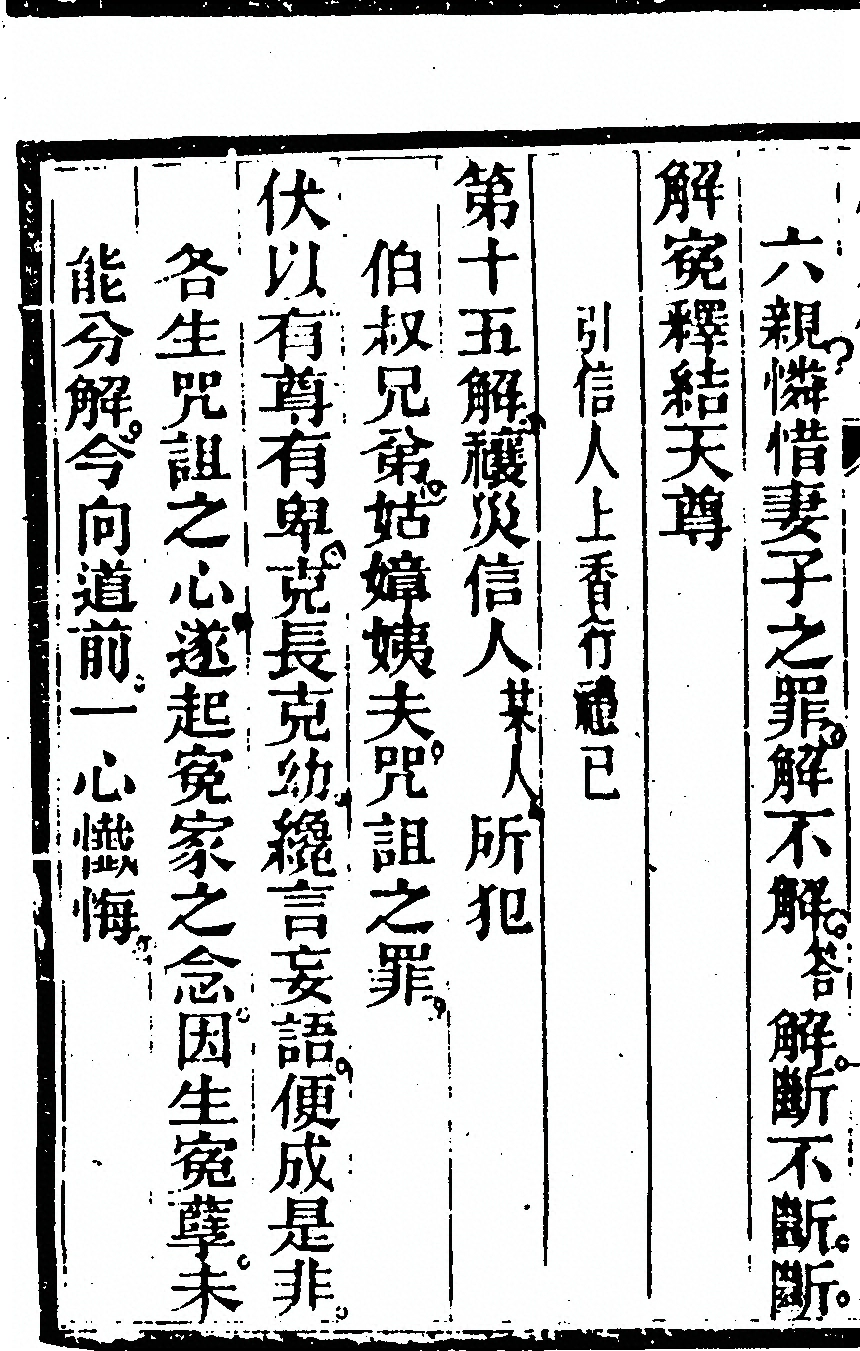 六親憐惜妻子之罪解不解答解斷不斷斷
解寃釋結天尊
引信人上香行禮已
第十五解禳災信人某人所犯
伯叔兄弟姑嫜姨夫咒詛之罪
伏以有尊有卑克長克幼纔言妄語便成是非
各生咒詛之心遂起寃家之念因生寃孽未
能分解今向道前一心懺悔